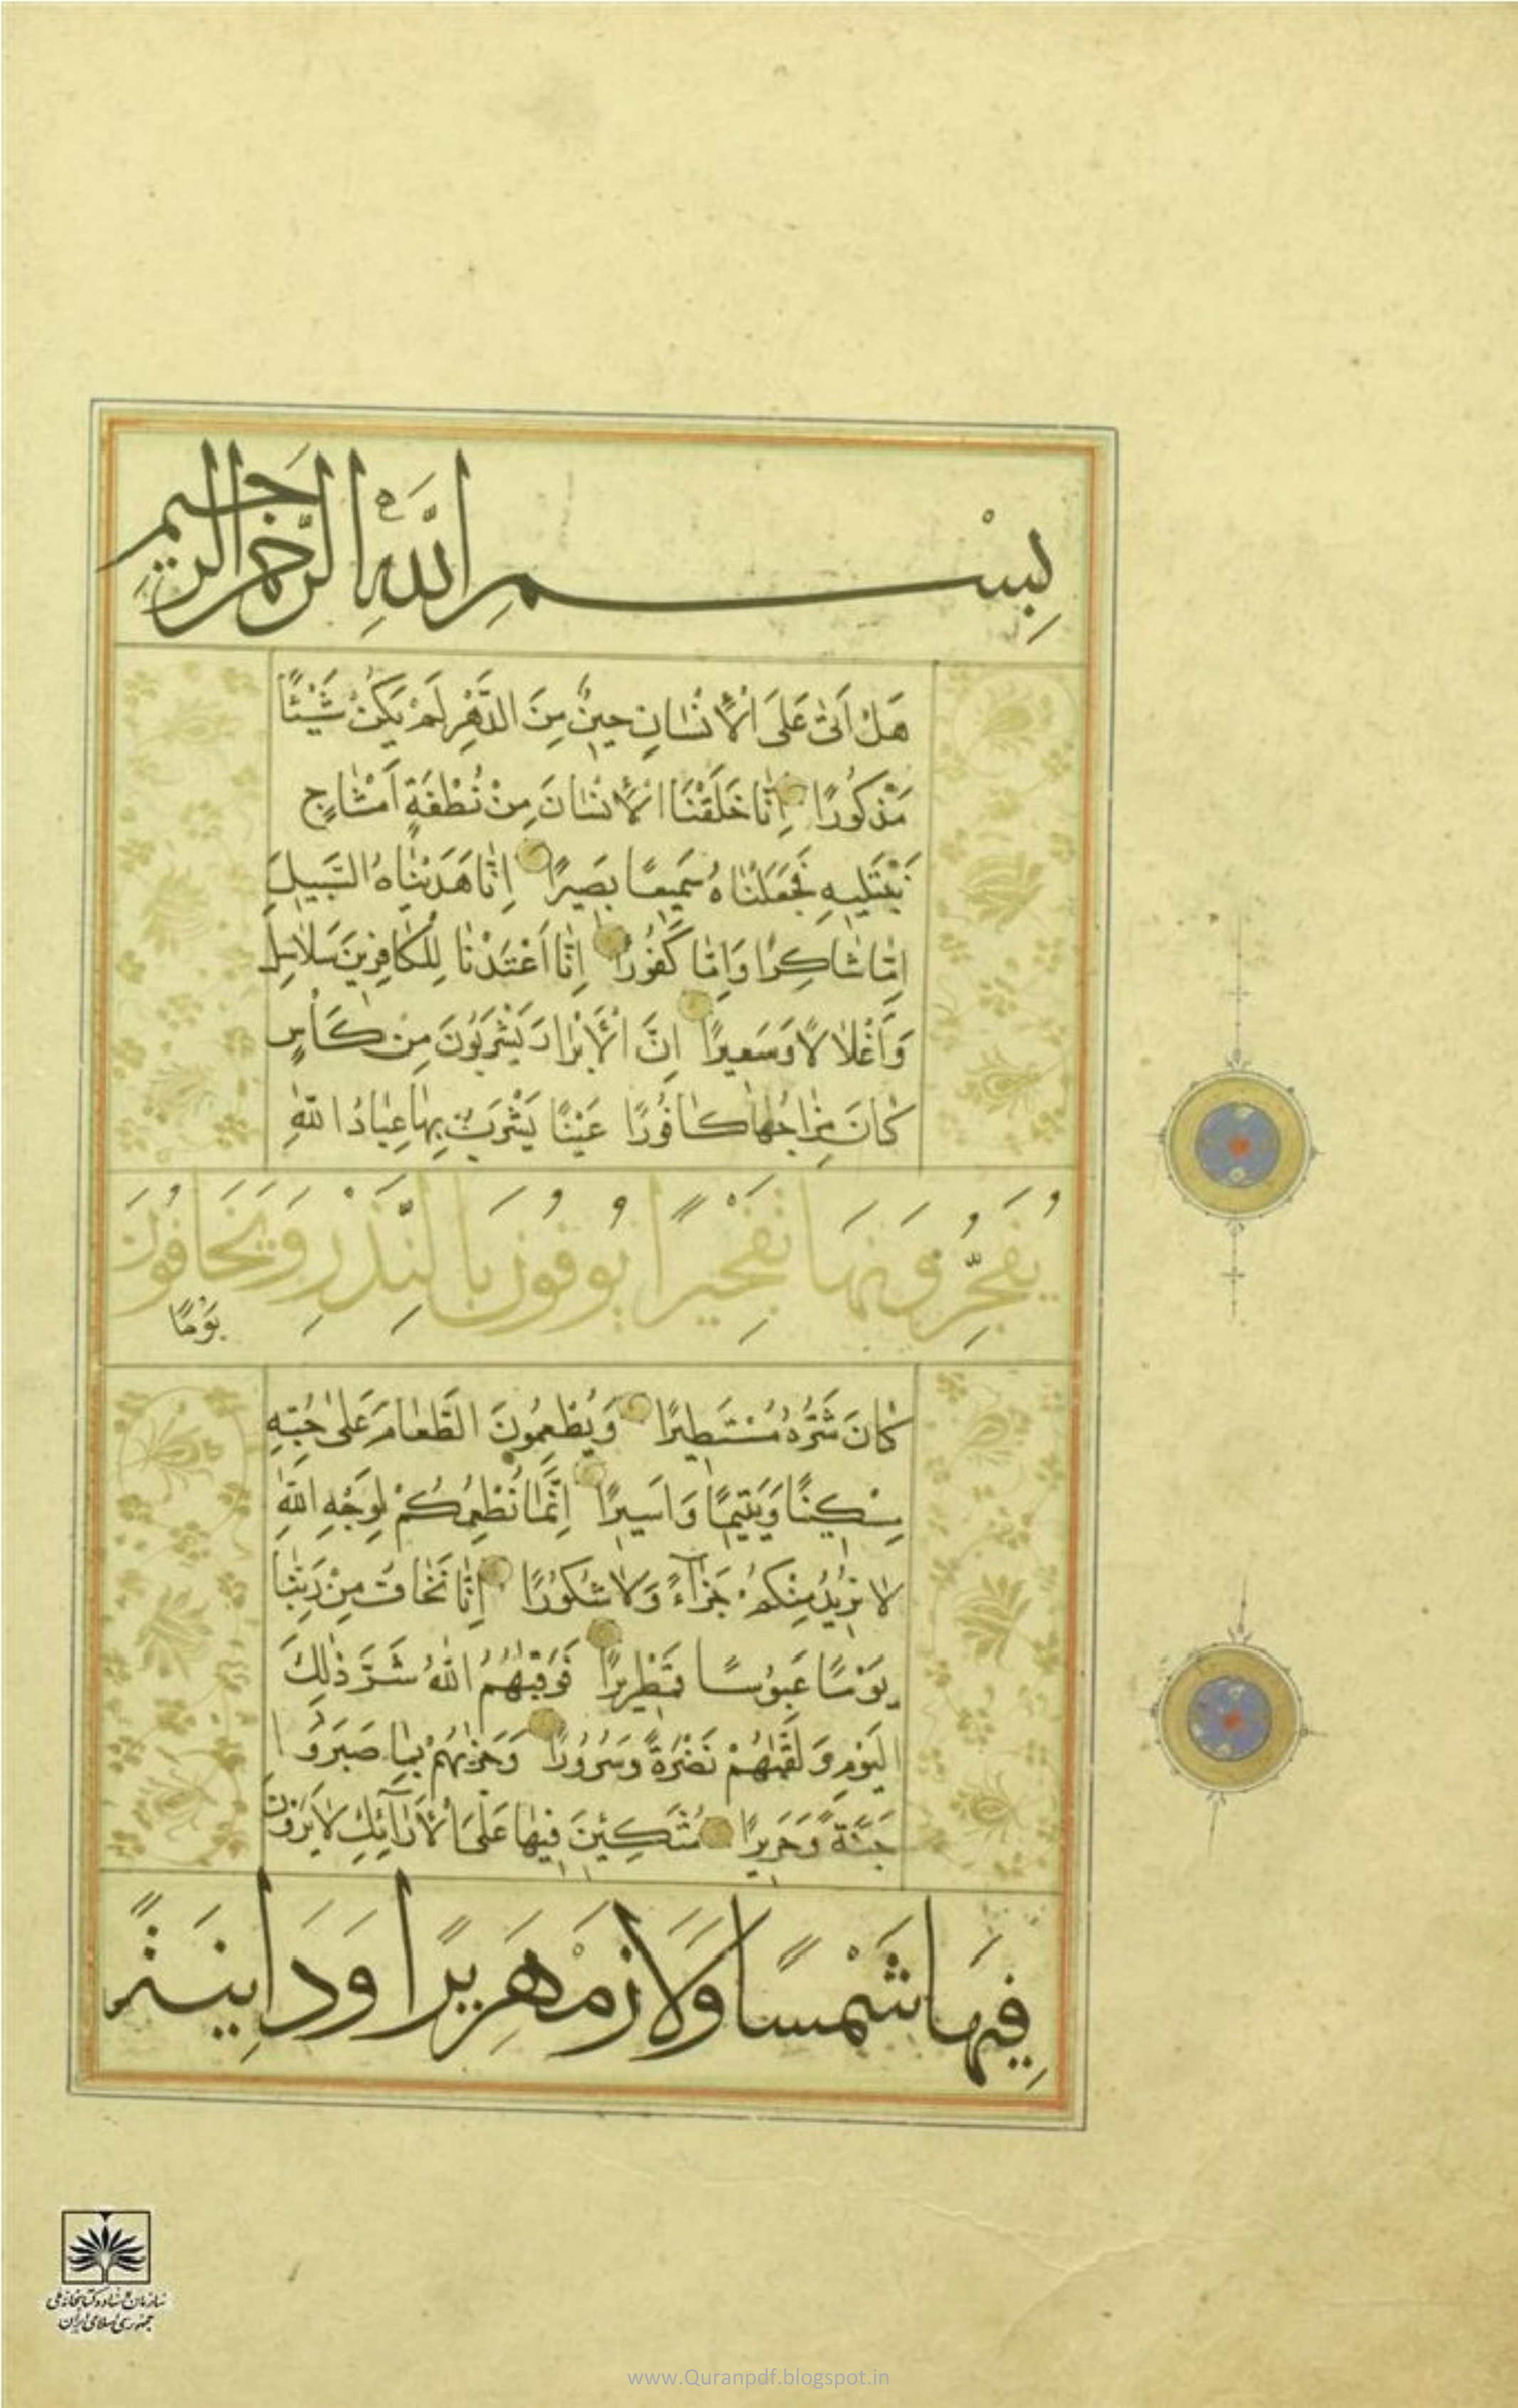 بِسْمِ اللَّهِ الرَّحْمَنِ الرَّحِيمِ
هَلْ أَتَىٰ عَلَى الْأِنْسَانِ حِينٌ مِنَ الدَّهْرِ لَمْ يَكُنْ شَيْئًا
مَذْكُورًا اِنَّا خَلَقْنَا الْأِنْسَانَ مِنْ نُطْفَةٍ اَمْشَاجٍ
نَبْتَلِيهِ فَجَعَلْنَاهُ سَمِيعًا بَصِيرًا اِنَّا هَدَيْنَاهُ السَّبِيلَ
اِمَّا شَاكِرًا وَاِمَّا كَفُورًا اِنَّا اَعْتَدْنَا لِلْكَافِرِينَ سَلَاسِلَ
وَاَغْلَالًا وَسَعِيرًا اِنَّ الْأَبْرَارَ يَشْرَبُونَ مِنْ كَأْسٍ
كَانَ مِزَاجُهَا كَافُورًا عَيْنًا يَشْرَبُ بِهَا عِبَادُ اللَّهِ
يُفَجِّرُونَهَا تَفْجِيرًا يُوفُونَ بِالنَّذْرِ وَيَخَافُونَ
يَوْمًا
كَانَ شَرُّهُ مُسْتَطِيرًا وَيُطْعِمُونَ الطَّعَامَ عَلَىٰ حُبِّهِ
مِسْكِينًا وَيَتِيمًا وَاَسِيرًا اِنَّمَا نُطْعِمُكُمْ لِوَجْهِ اللَّهِ
لَا نُرِيدُ مِنْكُمْ جَزَآءً وَلَا شُكُورًا اِنَّا نَخَافُ مِنْ رَبِّنَا
يَوْمًا عَبُوسًا قَمْطَرِيرًا فَوَقٰيهُمُ اللَّهُ شَرَّ ذٰلِكَ
الْيَوْمِ وَلَقّٰيهُمْ نَضْرَةً وَسُرُورًا وَجَزٰيهُمْ بِمَا صَبَرُوا
جَنَّةً وَحَرِيرًا مُتَّكِئِينَ فِيهَا عَلَى الْأَرَآئِكِ لَا يَرَوْنَ
فِيهَا شَمْسًا وَلَا زَمْهَرِيرًا وَدَانِيَةً
سازمان اسناد و کتابخانه ملی
جمهوری اسلامی ایران
www.Quranpdf.blogspot.in